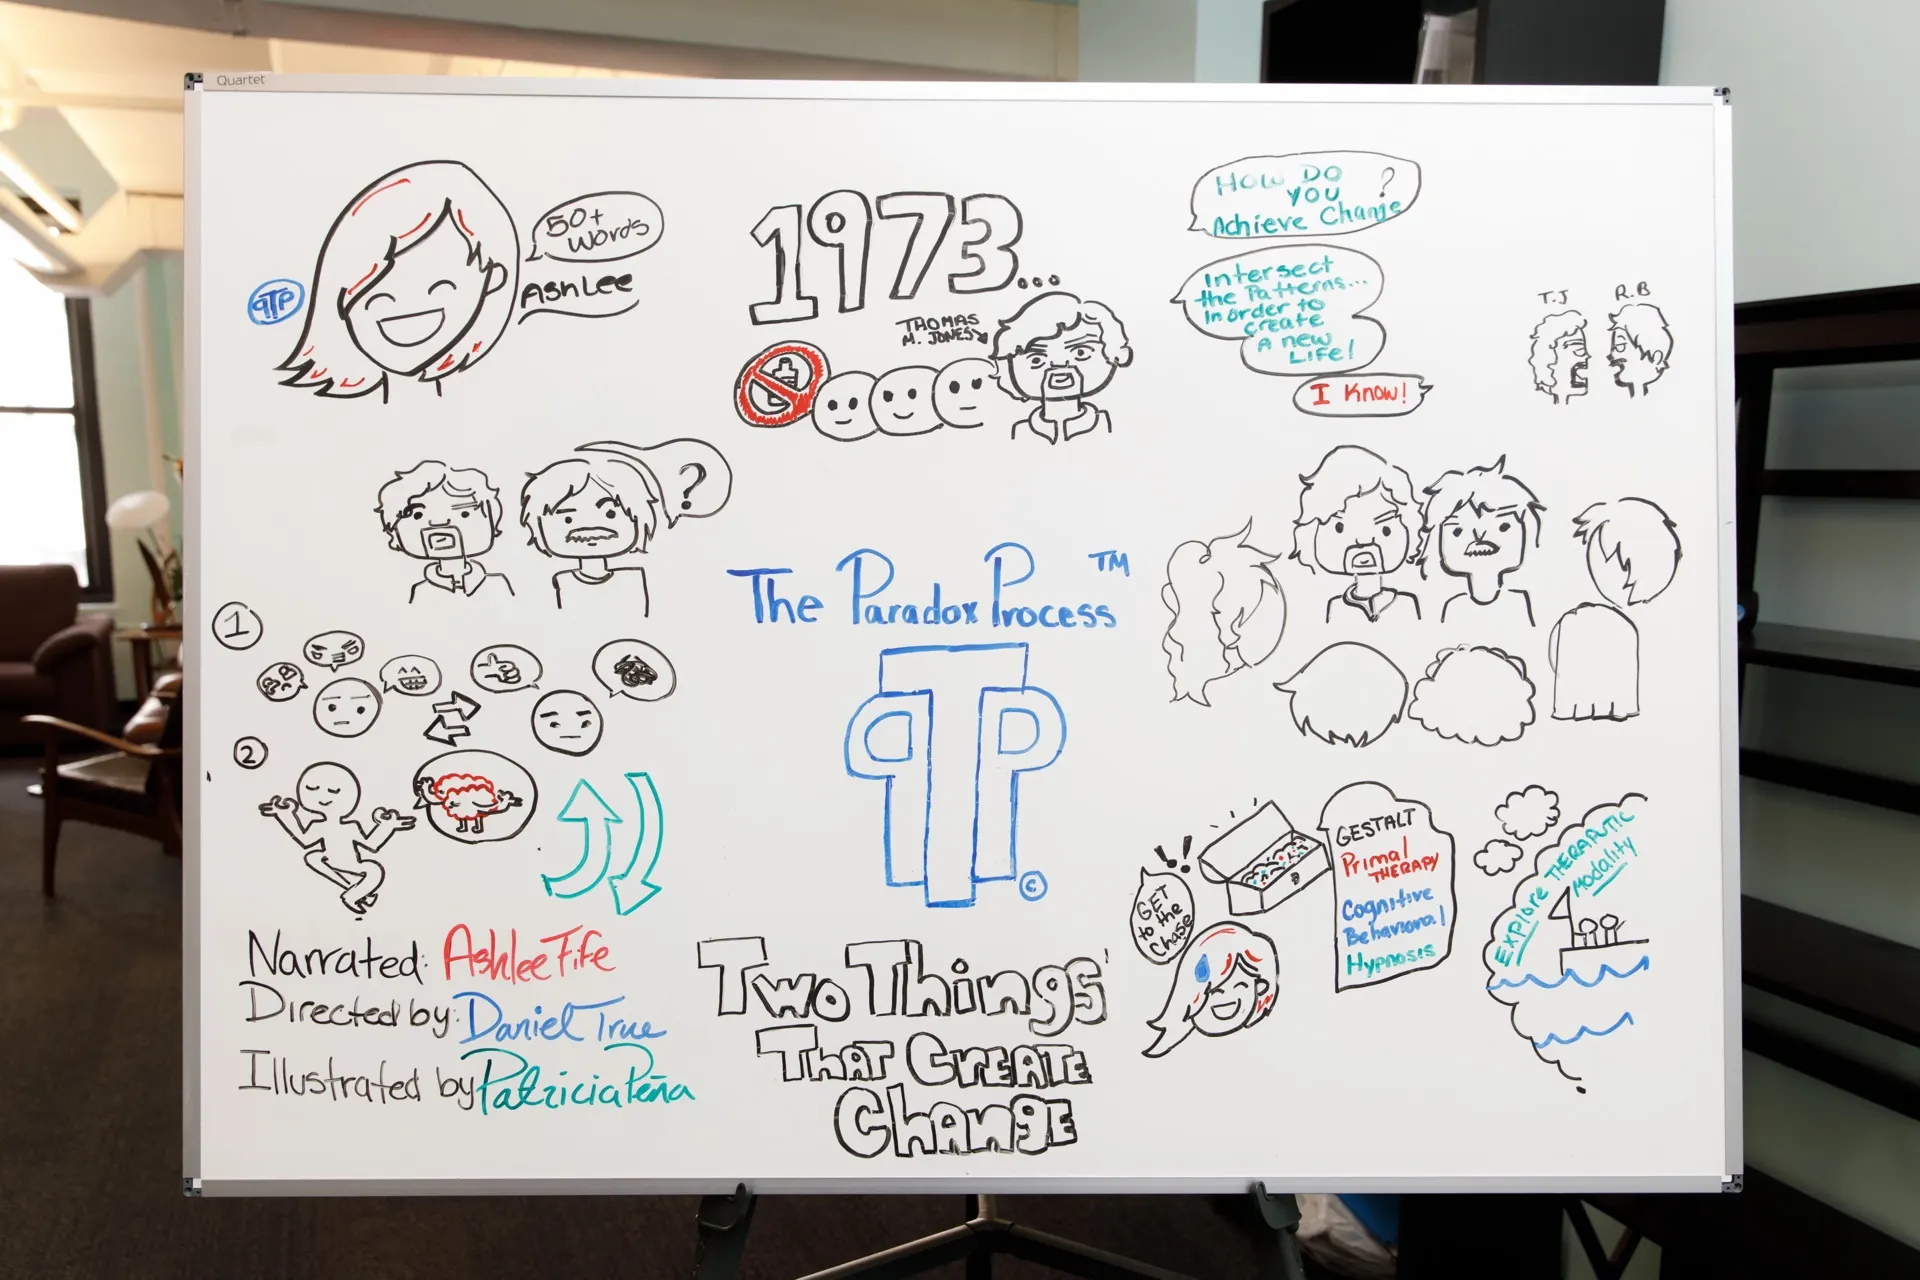 Quartet
50+
Words
AshLee
PTP
1973...
THOMAS
M. JONES
How Do
you ?
Achieve Change
Intersect
the Patterns...
In order to
create
A new
LIFE!
I Know!
T.J
R.B
?
1
2
The Paradox Process ™
PTP
©
Narrated: Ashlee Fife
Directed by: Daniel True
Illustrated by Patricia Peña
Two Things
That Create
Change
!!
GET
to the
Chase
GESTALT
Primal
THERAPY
Cognitive
Behavioral
Hypnosis
Explore THERAPUTIC
Modality